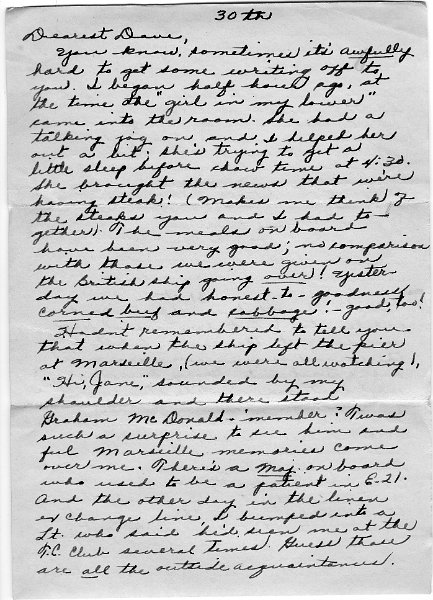 30th
Dearest Dave,
You know, sometimes it's awfully
hard to get some writing off to
you. I began half hour ago, at
the time the "girl in my lower"
came into the room. She had a
talking jag on, and I helped her
out a bit; she's trying to get a
little sleep before chow time at 4:30.
She brought the news that we're
having steak! (Makes me think of
the steaks you and I had to-
gether). The meals on board
have been very good; no comparison
with those we were given on
the British ship going over! Yester-
day we had honest-to-goodness
corned beef and cabbage! - good, too!
Hadn't remembered to tell you
that when the ship left the pier
at Marseille, (we were all watching),
"Hi, Jane," sounded by my
shoulder and there stood
Graham McDonald - 'member? Twas
such a surprise to see him and
ful Marseille memories came
over me. There's a Maj. on board
who used to be a patient in E-21.
And the other day in the linen
exchange line, I bumped into a
Lt. who said he'd seen me at the
T.C. Club several times. Guess those
are all the outside acquaintances.